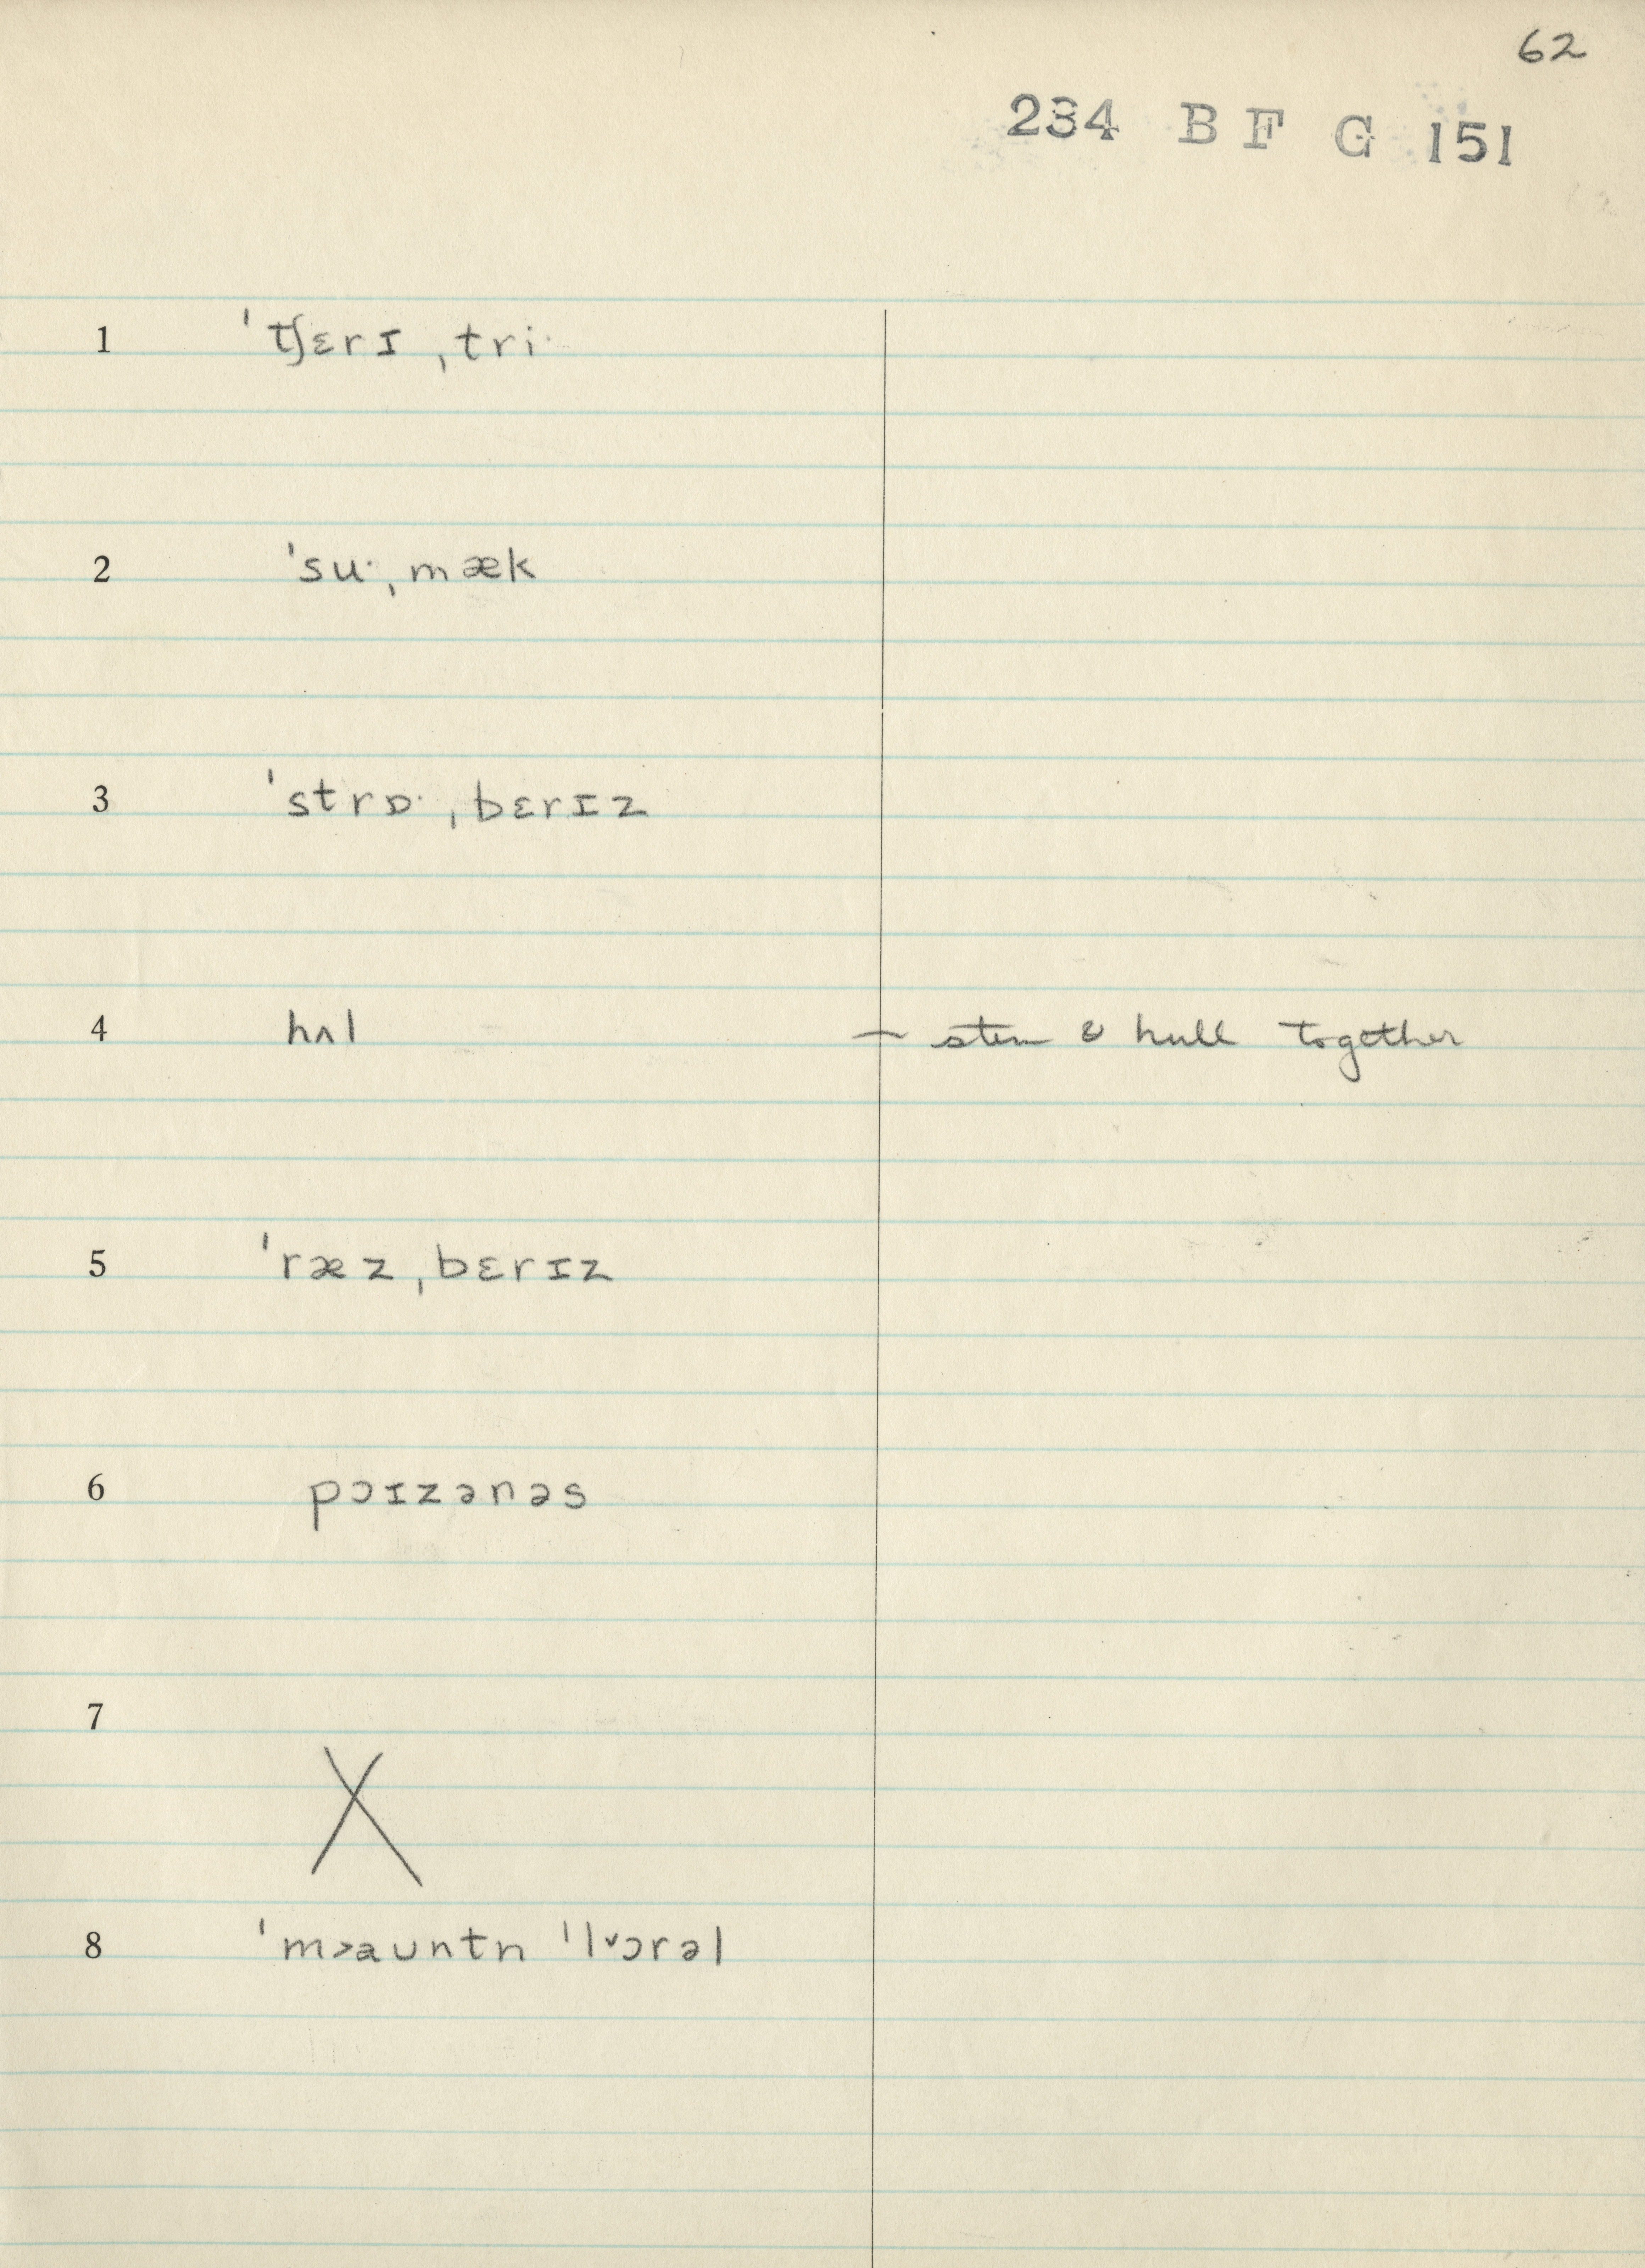 62
234 B F G 151
1 ˈtʃɛrɪ ˌtriˑ
2 ˈsuˑˌmæk
3 ˈstrɒˑˌbɛrɪz
4 hʌl — stem & hull together
5 ˈræzˌbɛrɪz
6 pɔɪzənəs
7 X
8 ˈm˃aʊntn ˈl˅ɔrəl